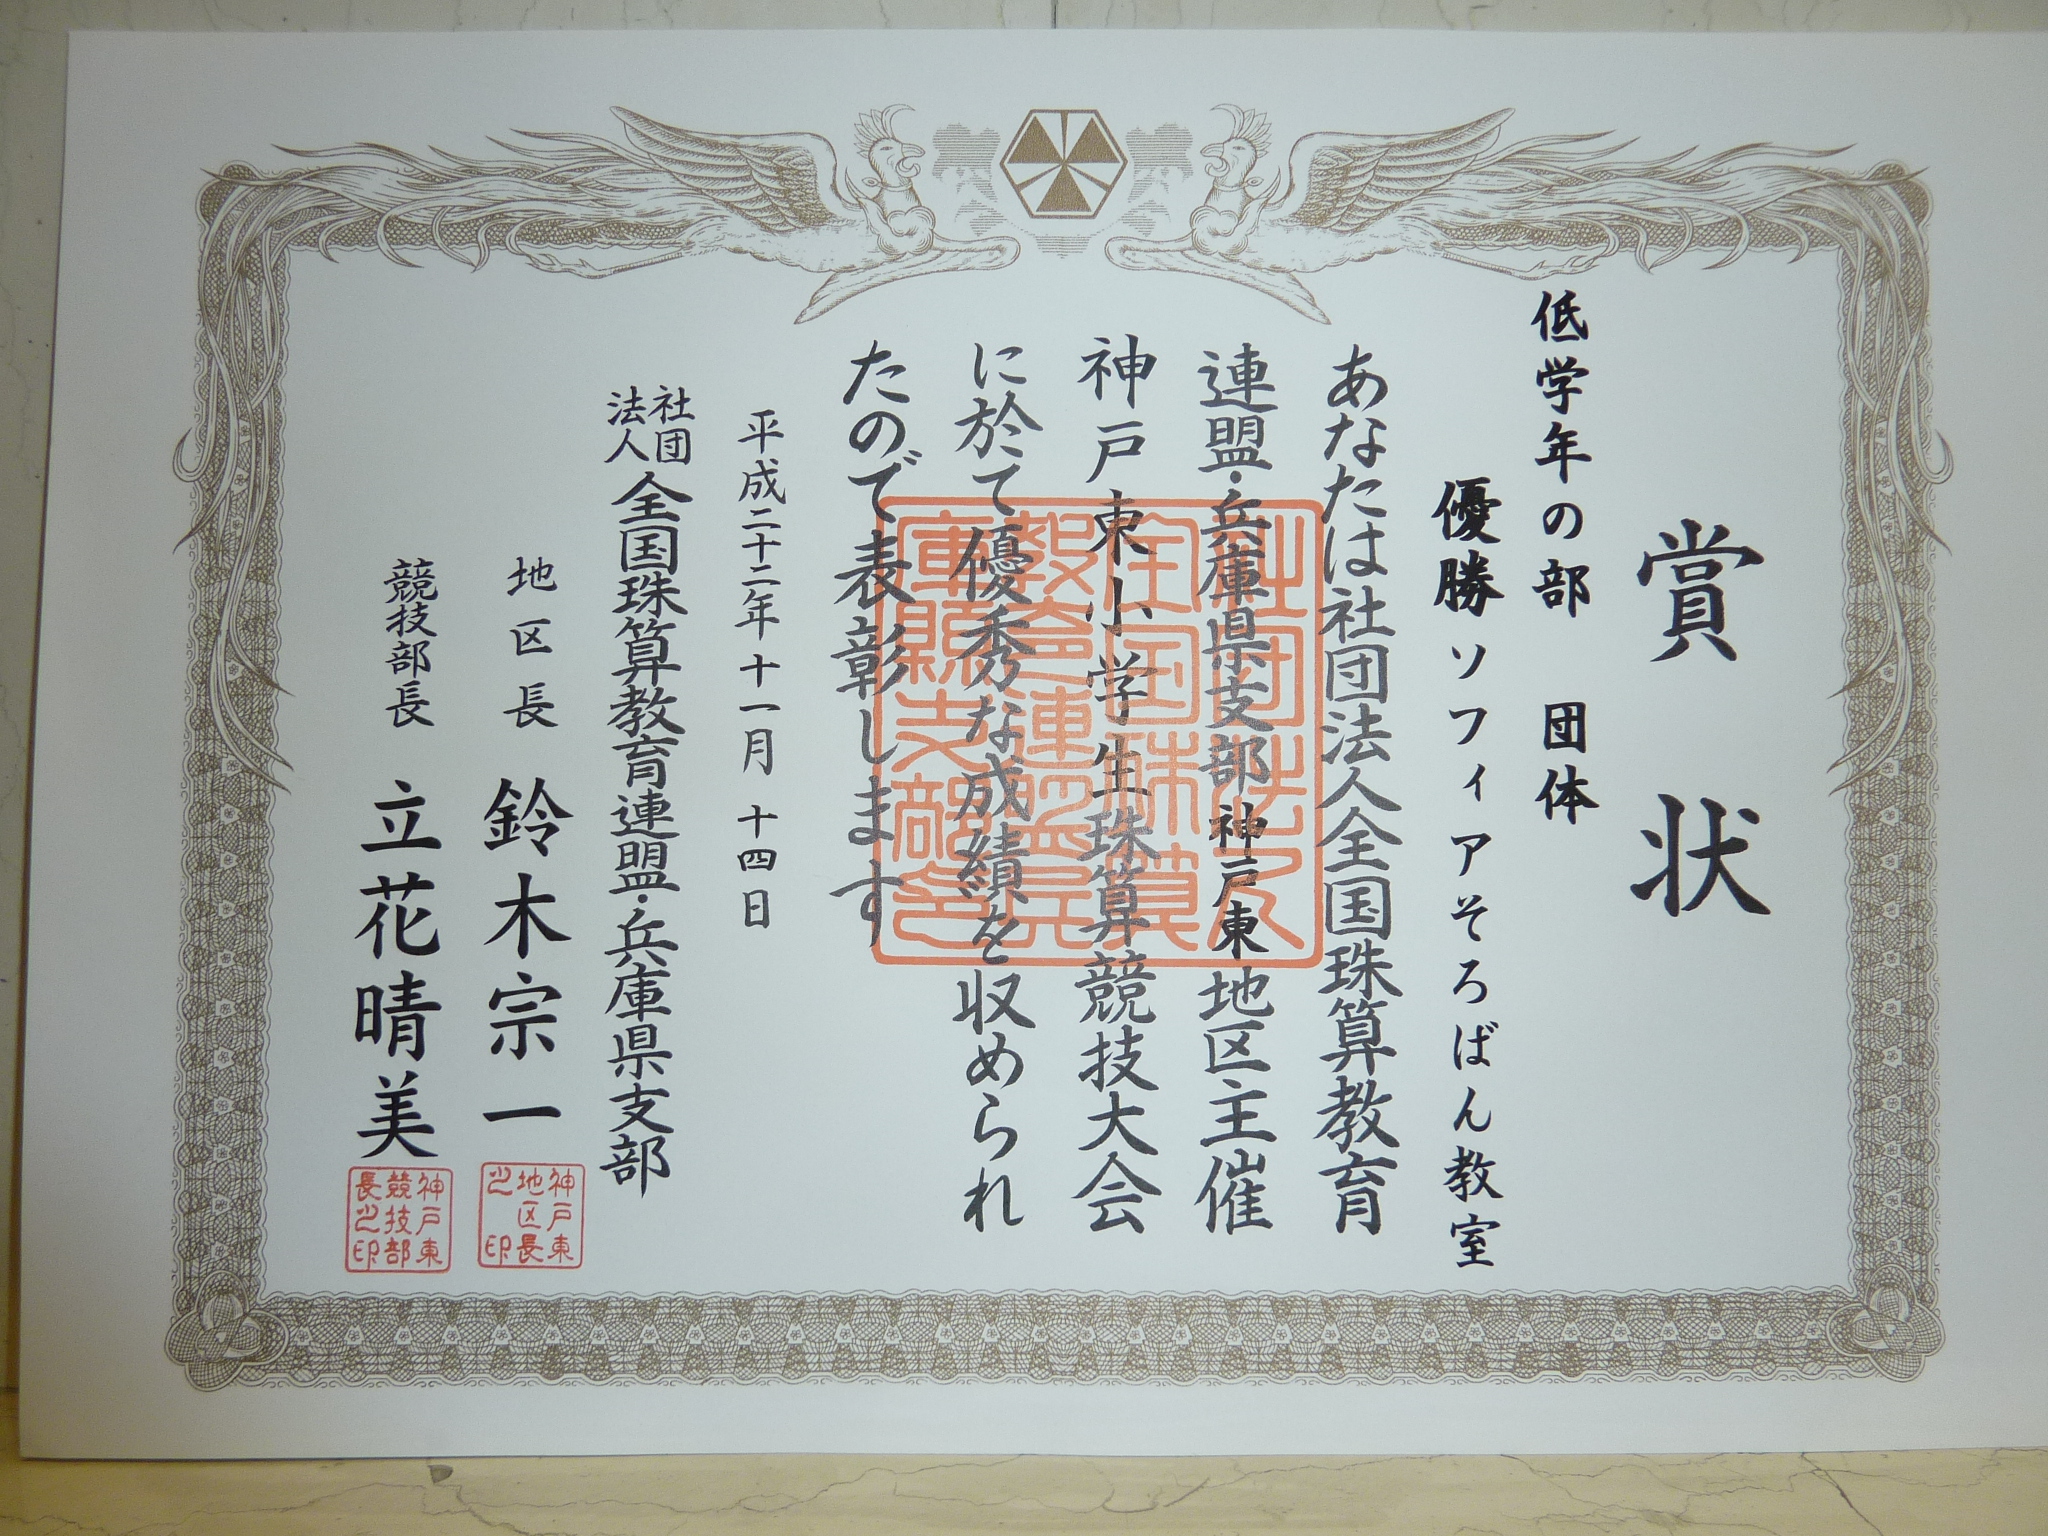 賞状
低学年の部　団体
優勝 ソフィアそろばん教室
あなたは社団法人全国珠算教育
連盟・兵庫県支部神戸東地区主催
神戸東小学生珠算競技大会
に於て優秀な成績を収められ
たので表彰します
平成二十二年十一月十四日
社団法人全国珠算教育連盟・兵庫県支部
地区長 鈴木宗一
神戸東
地区長
之印
競技部長 立花晴美
神戸東
競技部
長之印